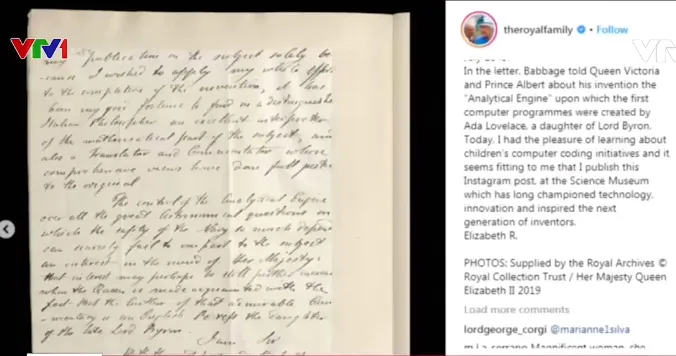 VTV1
VTV
may publication on the subject solely be-
-cause I wished to apply my whole effort
to the completion of the invention, it has
been my good fortune to find in a distinguished
Italian Philosopher an excellent interpreter
of the mathematical part of the subject, and
also a Translator and Commentator whose
comprehensive views have done full justice
to the original
The control of the Analytical Engine
over all the great Astronomical questions on
which the safety of the Navy so much depends
can scarcely fail to impart to the subject
an interest in the mind of Her Majesty:
that interest may perhaps be still further increased
when the Queen is made acquainted with the
fact that the author of that admirable Com-
-mentary is an English Peeress the daughter
of the late Lord Byron.
I am Sir
theroyalfamily • Follow
July 1843.
In the letter, Babbage told Queen Victoria
and Prince Albert about his invention the
"Analytical Engine" upon which the first
computer programmes were created by
Ada Lovelace, a daughter of Lord Byron.
Today, I had the pleasure of learning about
children's computer coding initiatives and it
seems fitting to me that I publish this
Instagram post, at the Science Museum
which has long championed technology,
innovation and inspired the next
generation of inventors.
Elizabeth R.
PHOTOS: Supplied by the Royal Archives ©
Royal Collection Trust / Her Majesty Queen
Elizabeth II 2019
Load more comments
lordgeorge_corgi @marianne1silva
Magnificent woman, she